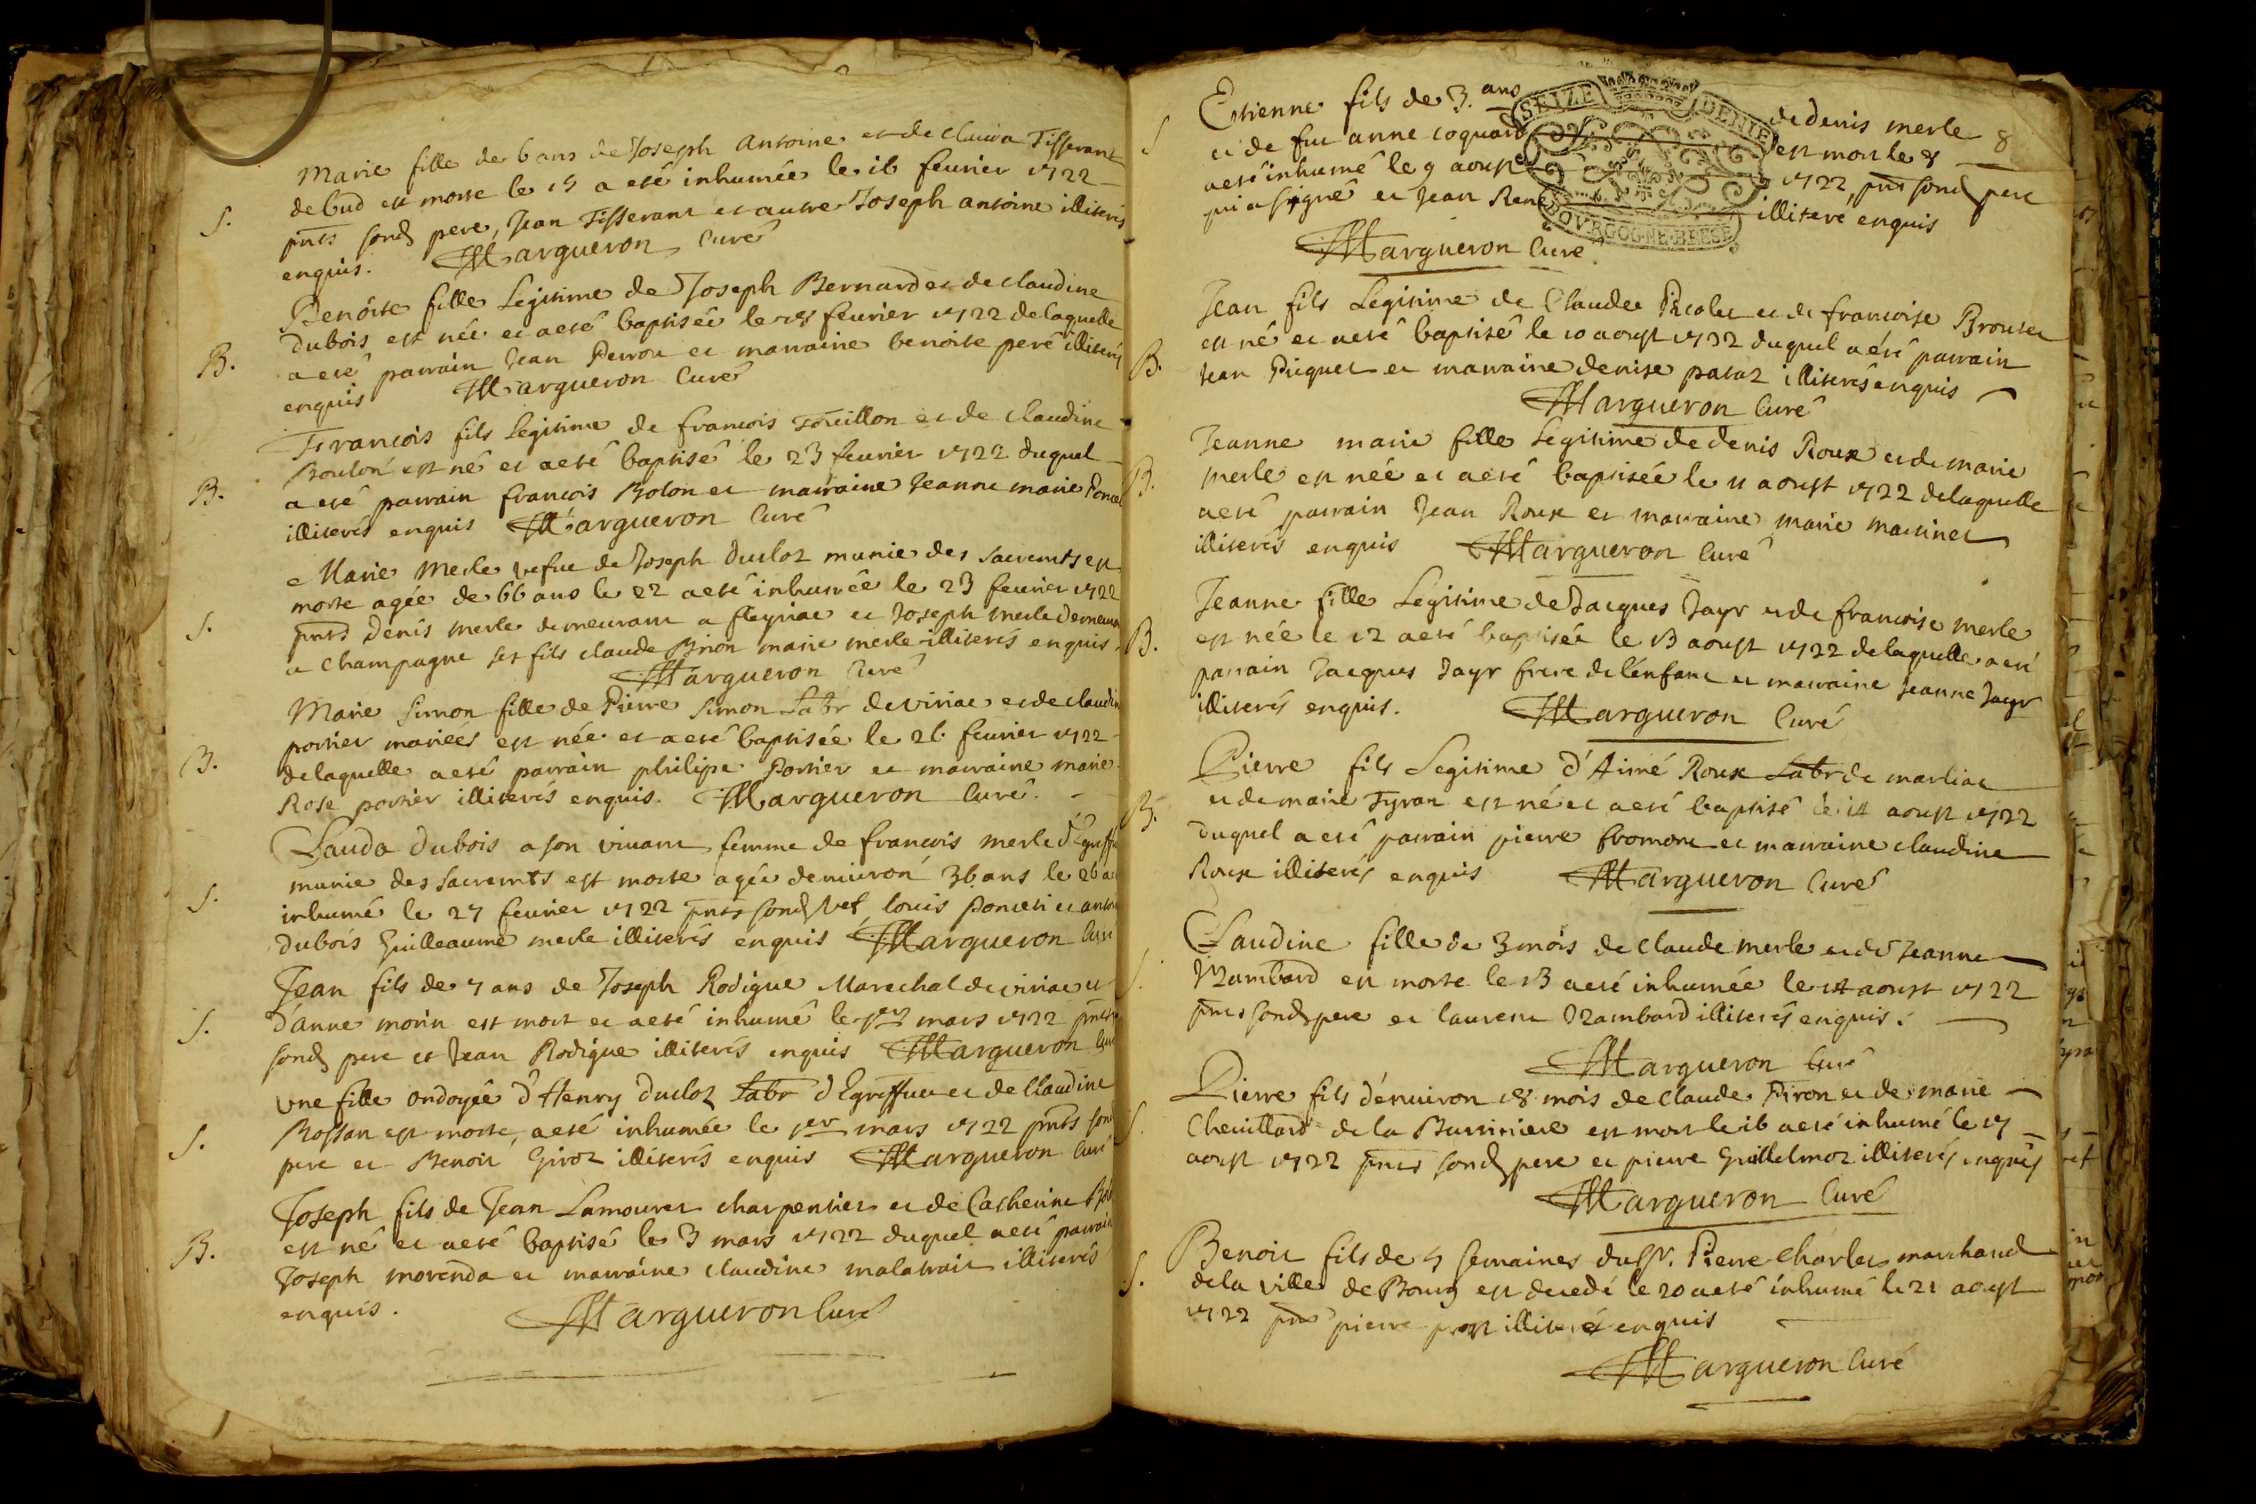 Marie fille de 6 ans de Joseph Antoine et de Tisserant
S.
de bud est morte le 15 a eté inhumée le 16 feurier 1722
pnts sond pere, Jean Tisserant et autre Joseph antoine illiterés
enquis. Margueron Curé
Benoite fille Legitime de Joseph Bernard et de claudine
Dubois est née et a eté baptisée le 18 feurier 1722 delaquelle
B.
a eté parrain Jean Perrou et marraine benoite peré illiterés
enquis Margueron Curé
François fils Legitime de francois et de claudine
est né et a eté baptisé le 23 feurier 1722 duquel
B.
a eté parrain francois Bolon et marraine Jeanne marie
illiterés enquis Margueron Curé
Marie Merle vefue de Joseph Ducloz munie des sacremts est
morte agée de 66 ans le 22 a eté inhumée le 23 feurier 1722
S.
pnts Denis merle demeurant a fleyriac et Joseph merle demeurant
a champagne ses fils claude Brion marie merle illiterés enquis.
Margueron Curé
Marie simon fille de Pierre simon Labr de viriac et de claudine
portier mariées est née et a eté baptisée le 26. feurier 1722
B.
delaquelle a eté parrain philipe Portier et marraine marie
Rose portier illiterés enquis. Margueron Curé.
Clauda dubois a son viuant femme de francois merle
munie des sacremts est morte agée denuiron 36 ans le 26 a
S.
inhumé le 27 feurier 1722 pnts sond vef louis et
dubois Guilleaume merle illiterés enquis Margueron Curé
Jean fils de 7 ans de Joseph Rodigue Marechal de viriac et
S.
d'anne morin est mort et a eté inhumé le 1er mars 1722 pnts
sond pere et Jean Rodigue illiterés enquis Margueron Curé
une fille ondoyée d'Henry ducloz Labr d'Egreffue et de Claudine
S.
Rossan est morte, a eté inhumée le 1er mars 1722 pnts son
pere et Benoit Giroz illiterés enquis Margueron Curé
Joseph fils de Jean Lamouret charpentier et de Catherine
B.
est né et a eté baptisé le 3 mars 1722 duquel a eté parrain
Joseph morenda et marraine claudine malatrait illiterés
enquis. Margueron Curé
Estienne fils de 3. ans de denis merle 8
S
et de fue anne coquard est mort le 8
a eté inhumé le 9 aoust 1722, pnt sond pere
qui a signé et Jean René illiteré enquis
SEIZE DENIE
BOVRGOGNE BRESSE
Margueron Curé
Jean fils Legitime de Claude Picolet et de francoise
est né et a eté baptisé le 10 aoust 1722 duquel a été parrain
B.
Jean Piquet et marraine denise pataz illiterés enquis
Margueron Curé
Jeanne marie fille Legitime de denis Roux et de marie
B.
merle est née et a eté baptisée le 11 aoust 1722 delaquelle
a eté parrain Jean Roux et marraine marie martinet
illiterés enquis Margueron Curé
Jeanne fille Legitime de Jacques Jayr et de francoise merle
B.
est née le 12 a eté baptisée le 13 aoust 1722 delaquelle a eté
parrain Jacques Jayr frere de l'enfant et marraine Jeanne Jayr
illiterés enquis. Margueron Curé
Pierre fils Legitime d'Aimé Roux Labr de marliac
B.
et de marie est né et a eté baptisé le 14 aoust 1722
duquel a eté parrain pierre fromont et marraine claudine
Roux illiterés enquis Margueron Curé
Claudine fille de 3 mois de claude merle et de Jeanne
S.
Mambard est morte le 13 a eté inhumée le 14 aoust 1722
pnts sond pere et laurent Mambard illiterés enquis.
Margueron Curé
Pierre fils d'enuiron 18 mois de claude Piron et de marie
S.
Cheuillard de la est mort le 16 a eté inhumé le 17
aoust 1722 pnts sond pere et pierre Guillelmoz illiterés enquis
Margueron Curé
Benoit fils de 5 semaines du Sr. Pierre charles marchand
S.
de la ville de Bourg est decedé le 20 a eté inhumé le 21 aoust
1722 pnt pierre illiteré enquis
Margueron Curé